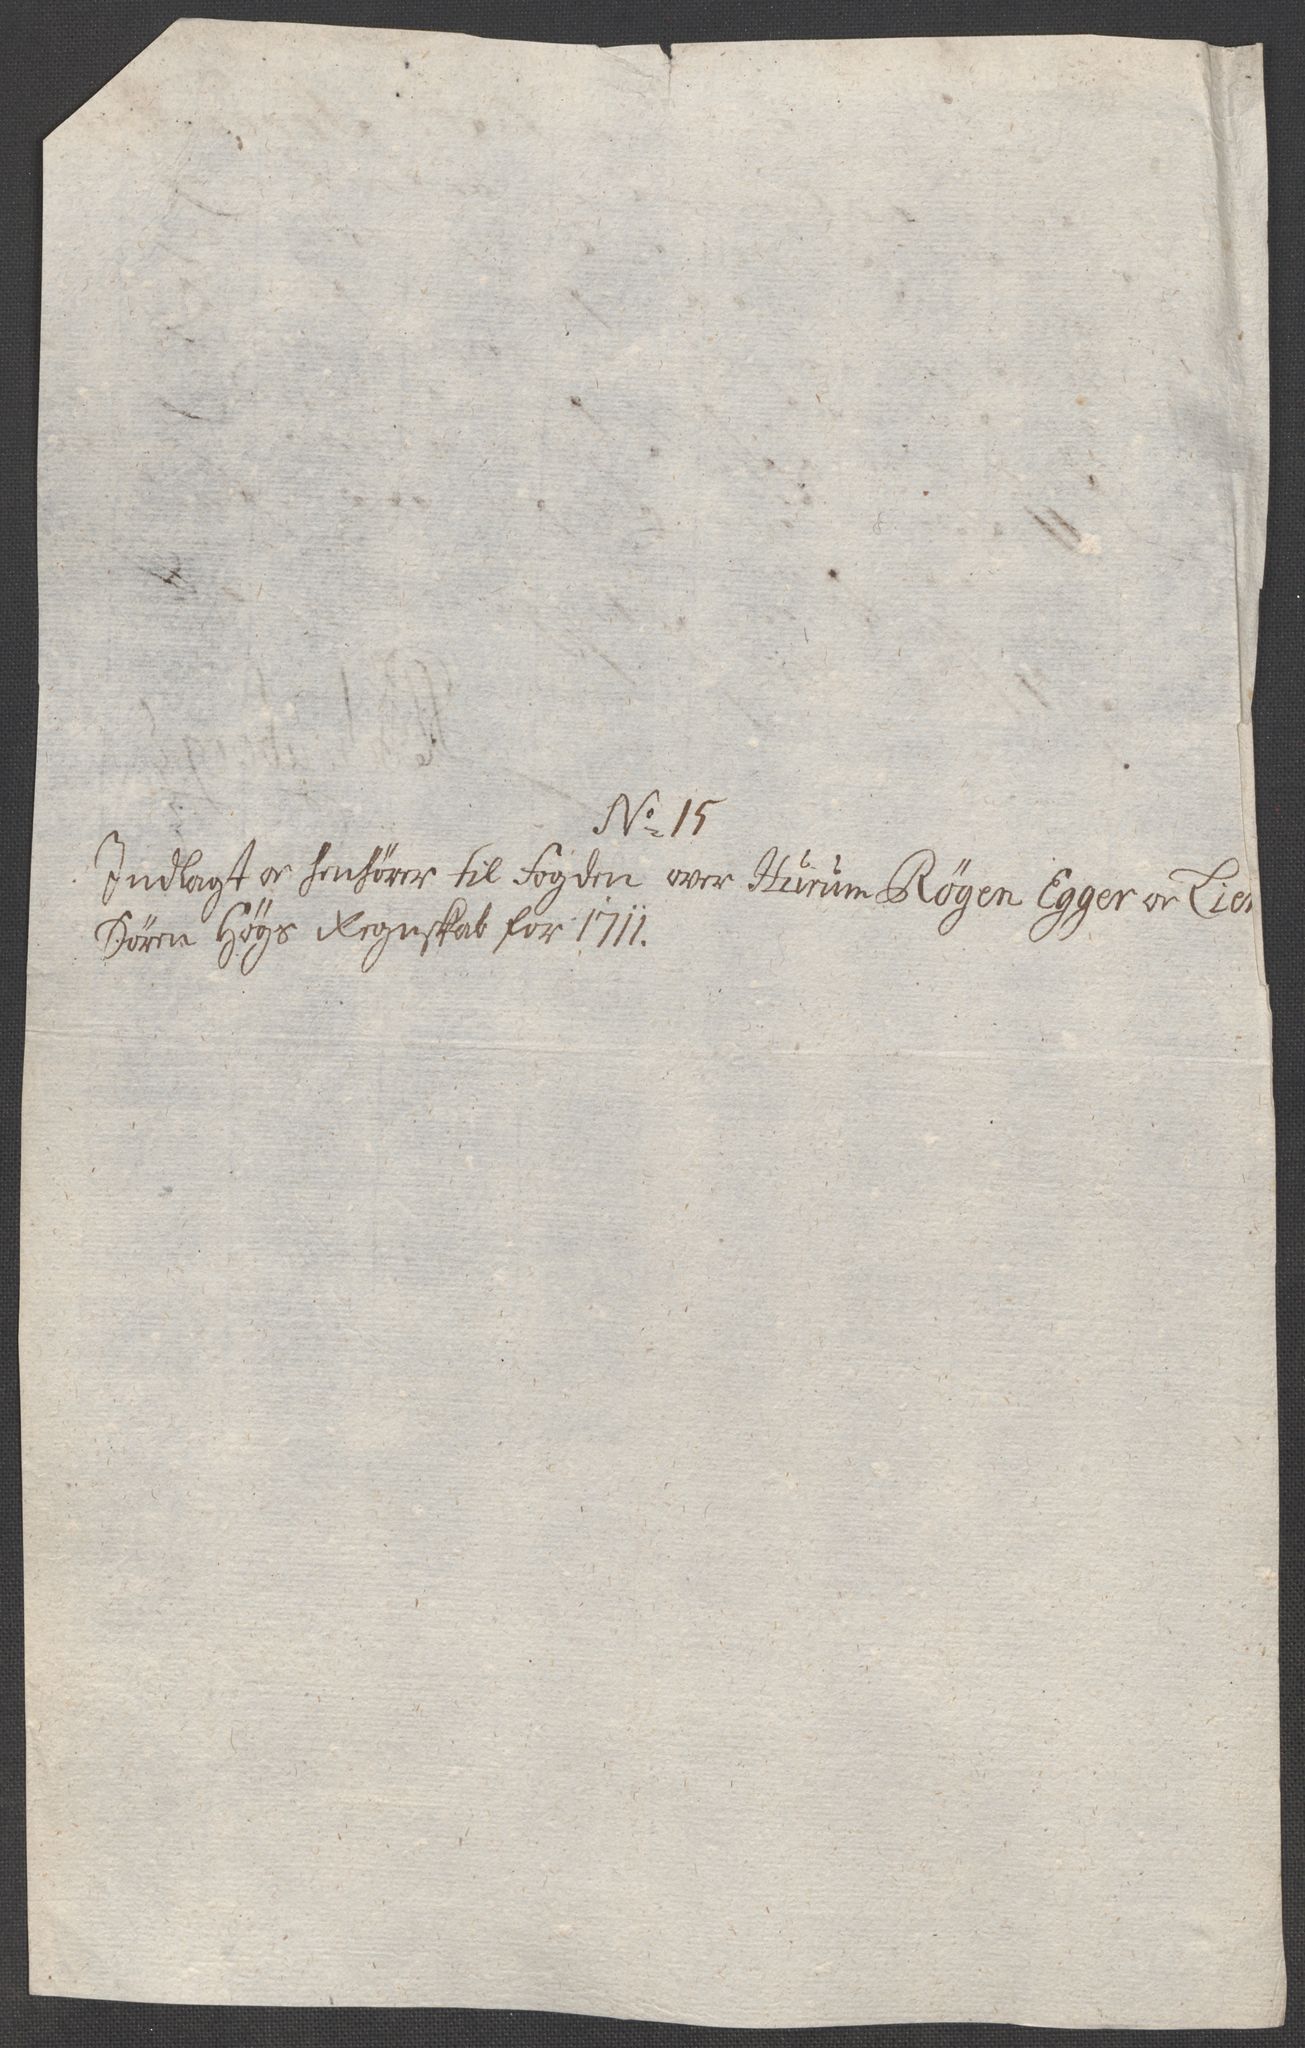 No: 15
Indlagt or henhörer til Fogden over Hurum Rögen Egger or Lier
Sören Högs Regnskab for 1711.